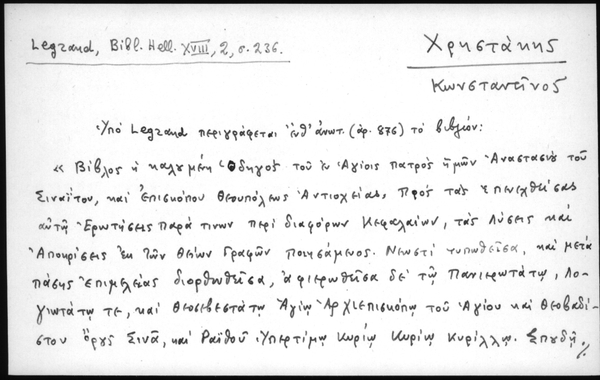 Legrand, Bibl. Hell. XVIII, 2, σ. 236.
Χρηστάκης
Κωνσταντῖνος
Ὑπό Legrand περιγράφεται ἔνθ' ἀνωτ. (ἀρ. 876) τό βιβλίον:
« Βίβλος ἡ καλουμένη Ὁδηγός τοῦ ἐν Ἁγίοις πατρός ἡμῶν Ἀναστασίου τοῦ
Σιναΐτου, καί Ἐπισκόπου Θεουπόλεως Ἀντιοχείας, Πρός τάς ἐπενεχθείσας
αὐτῷ Ἐρωτήσεις παρά τινων περί διαφόρων Κεφαλαίων, τάς Λύσεις καί
Ἀποκρίσεις ἐκ τῶν θείων Γραφῶν ποιησάμενος. Νεωστί τυπωθεῖσα, καί μετά
πάσης Ἐπιμελείας διορθωθεῖσα, ἀφιερωθεῖσα δέ τῷ Πανιερωτάτῳ, Λο-
γιωτάτῳ τε, καί Θεοσεβεστάτῳ Ἁγίῳ Ἀρχιεπισκόπῳ τοῦ Ἁγίου καί Θεοβαδί-
στου Ὄρους Σινᾶ, καί Ραϊθοῦ Ὑπερτίμῳ Κυρίῳ Κυρίῳ Κυρίλλῳ. Σπουδῇ ./.